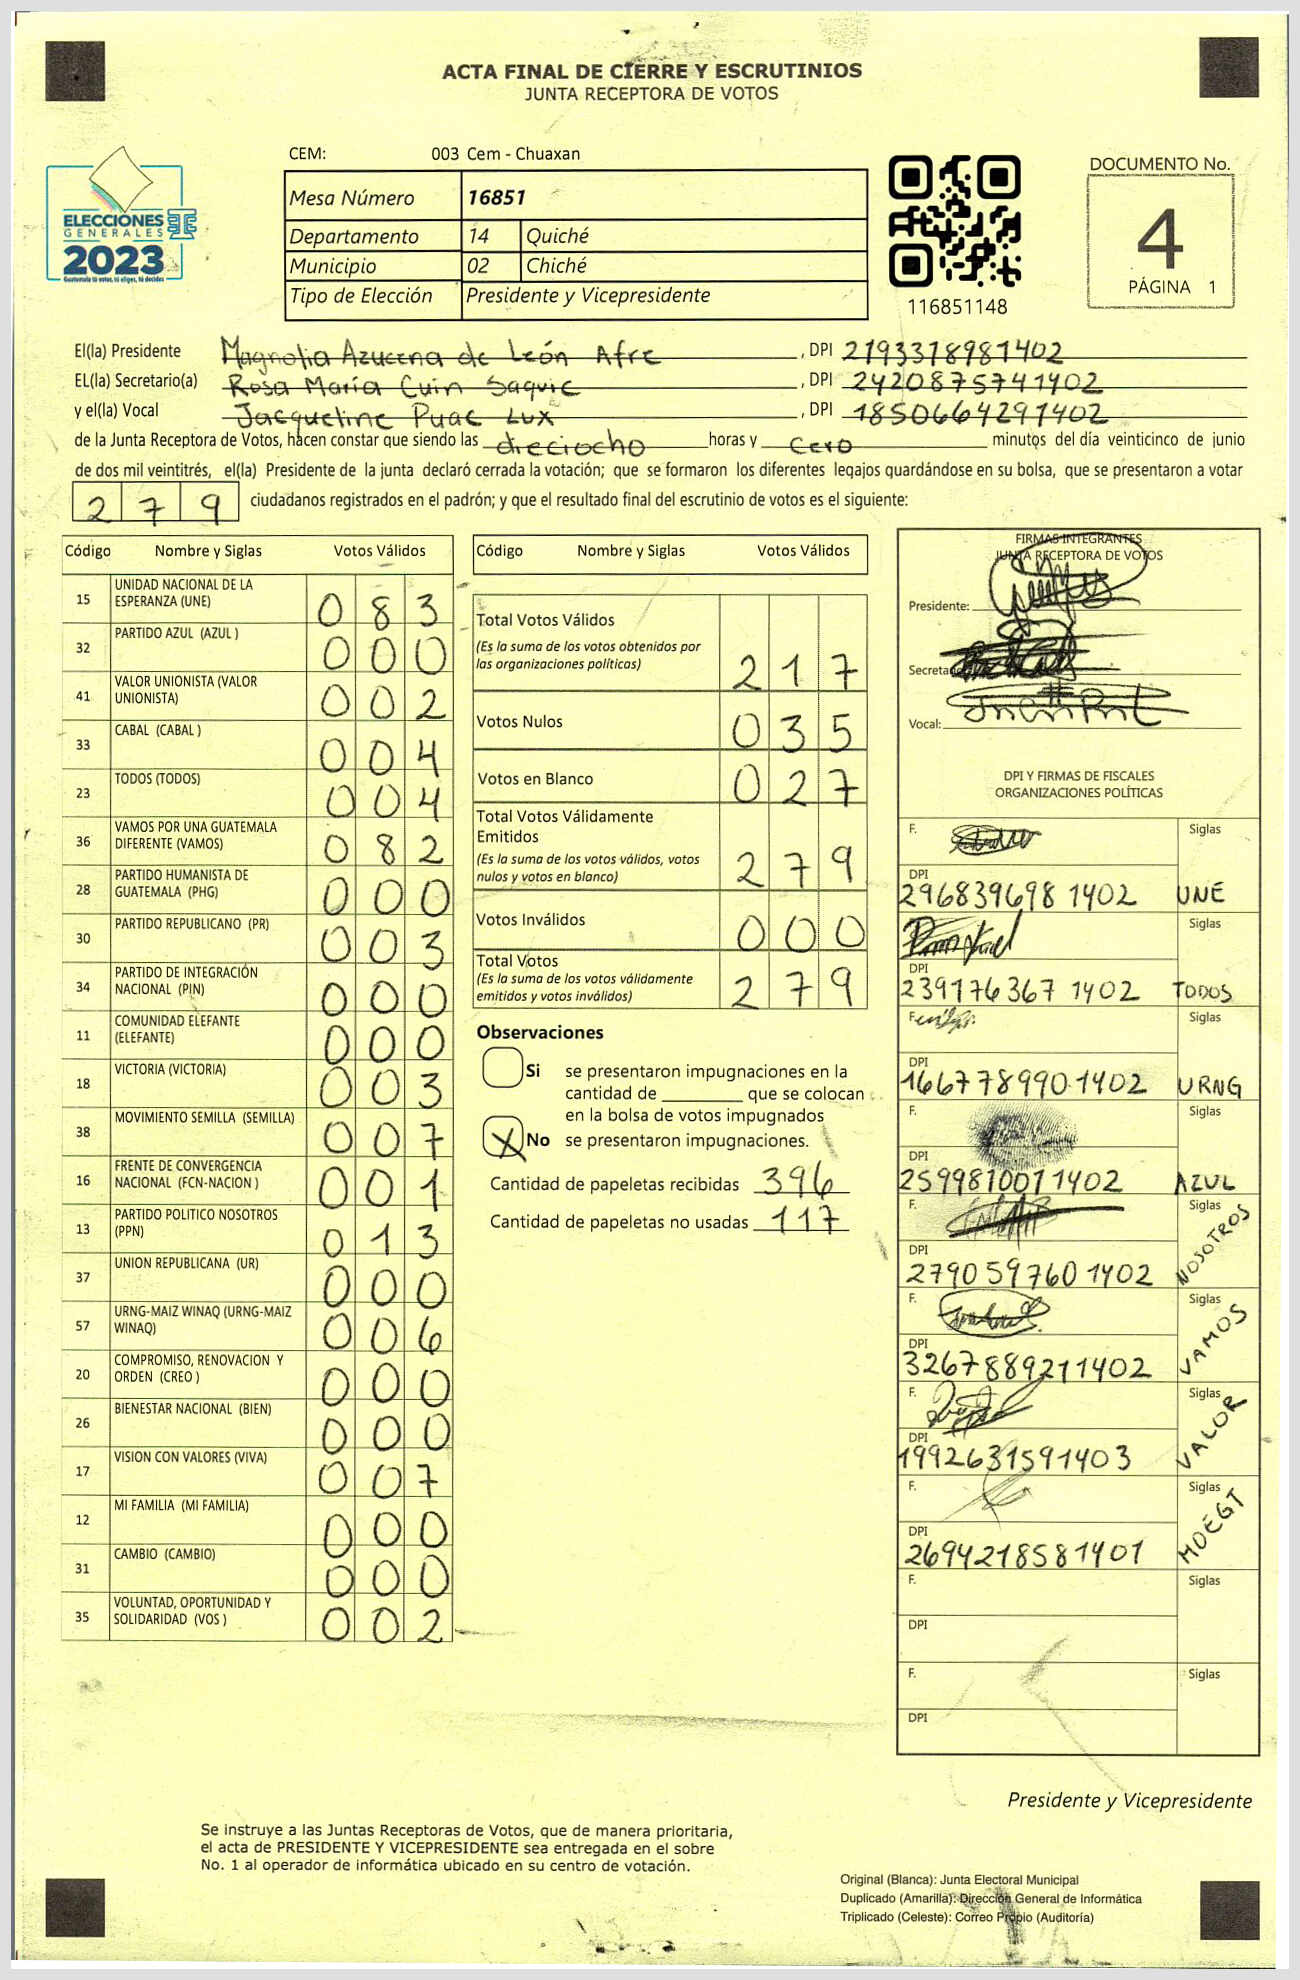 ACTA FINAL DE CIERRE Y ESCRUTINIOS
JUNTA RECEPTORA DE VOTOS
ELECCIONES
GENERALES
2023
Guatemala tú votas, tú eliges, tú decides
CEM: 003 Cem - Chuaxan
Mesa Número 16851
Departamento 14 Quiché
Municipio 02 Chiché
Tipo de Elección Presidente y Vicepresidente
116851148
DOCUMENTO No.
4
PÁGINA 1
El(la) Presidente Magnolia Azucena de León Afre, DPI 2193318981402
EL(la) Secretario(a) Rosa María Cuin Saquic, DPI 2420875741402
y el(la) Vocal Jacqueline Puac Lux, DPI 1850664291402
de la Junta Receptora de Votos, hacen constar que siendo las dieciocho horas y cero minutos del día veinticinco de junio
de dos mil veintitrés, el(la) Presidente de la junta declaró cerrada la votación; que se formaron los diferentes legajos quardándose en su bolsa, que se presentaron a votar
279 ciudadanos registrados en el padrón; y que el resultado final del escrutinio de votos es el siguiente:
Código Nombre y Siglas Votos Válidos
15 UNIDAD NACIONAL DE LA ESPERANZA (UNE) 083
32 PARTIDO AZUL (AZUL ) 000
41 VALOR UNIONISTA (VALOR UNIONISTA) 002
33 CABAL (CABAL ) 004
23 TODOS (TODOS) 004
36 VAMOS POR UNA GUATEMALA DIFERENTE (VAMOS) 082
28 PARTIDO HUMANISTA DE GUATEMALA (PHG) 000
30 PARTIDO REPUBLICANO (PR) 003
34 PARTIDO DE INTEGRACIÓN NACIONAL (PIN) 000
11 COMUNIDAD ELEFANTE (ELEFANTE) 000
18 VICTORIA (VICTORIA) 003
38 MOVIMIENTO SEMILLA (SEMILLA) 007
16 FRENTE DE CONVERGENCIA NACIONAL (FCN-NACION ) 001
13 PARTIDO POLITICO NOSOTROS (PPN) 013
37 UNION REPUBLICANA (UR) 000
57 URNG-MAIZ WINAQ (URNG-MAIZ WINAQ) 006
20 COMPROMISO, RENOVACION Y ORDEN (CREO ) 000
26 BIENESTAR NACIONAL (BIEN) 000
17 VISION CON VALORES (VIVA) 007
12 MI FAMILIA (MI FAMILIA) 000
31 CAMBIO (CAMBIO) 000
35 VOLUNTAD, OPORTUNIDAD Y SOLIDARIDAD (VOS ) 002
Código Nombre y Siglas Votos Válidos
Total Votos Válidos 217
(Es la suma de los votos obtenidos por
las organizaciones políticas)
Votos Nulos 035
Votos en Blanco 027
Total Votos Válidamente
Emitidos 279
(Es la suma de los votos válidos, votos
nulos y votos en blanco)
Votos Inválidos 000
Total Votos 279
(Es la suma de los votos válidamente
emitidos y votos inválidos)
Observaciones
Si se presentaron impugnaciones en la
cantidad de ________ que se colocan
en la bolsa de votos impugnados
X No se presentaron impugnaciones.
Cantidad de papeletas recibidas 396
Cantidad de papeletas no usadas 117
FIRMAS INTEGRANTES
JUNTA RECEPTORA DE VOTOS
Presidente:
Secretar
Vocal:
DPI Y FIRMAS DE FISCALES
ORGANIZACIONES POLÍTICAS
F. Siglas
DPI
296839698 1402 UNE
F. Siglas
DPI
239176367 1402 TODOS
F. Siglas
DPI
166778990 1402 URNG
F. Siglas
DPI
2599810011402 AZUL
F. Siglas
DPI
279059760 1402 NOSOTROS
F. Siglas
DPI
3267889211402 VAMOS
F. Siglas
DPI
1992631591403 VALOR
F. Siglas
DPI
2694218581401 MOEGT
F. Siglas
DPI
F. Siglas
DPI
Presidente y Vicepresidente
Se instruye a las Juntas Receptoras de Votos, que de manera prioritaria,
el acta de PRESIDENTE Y VICEPRESIDENTE sea entregada en el sobre
No. 1 al operador de informática ubicado en su centro de votación.
Original (Blanca): Junta Electoral Municipal
Duplicado (Amarilla): Dirección General de Informática
Triplicado (Celeste): Correo Propio (Auditoría)